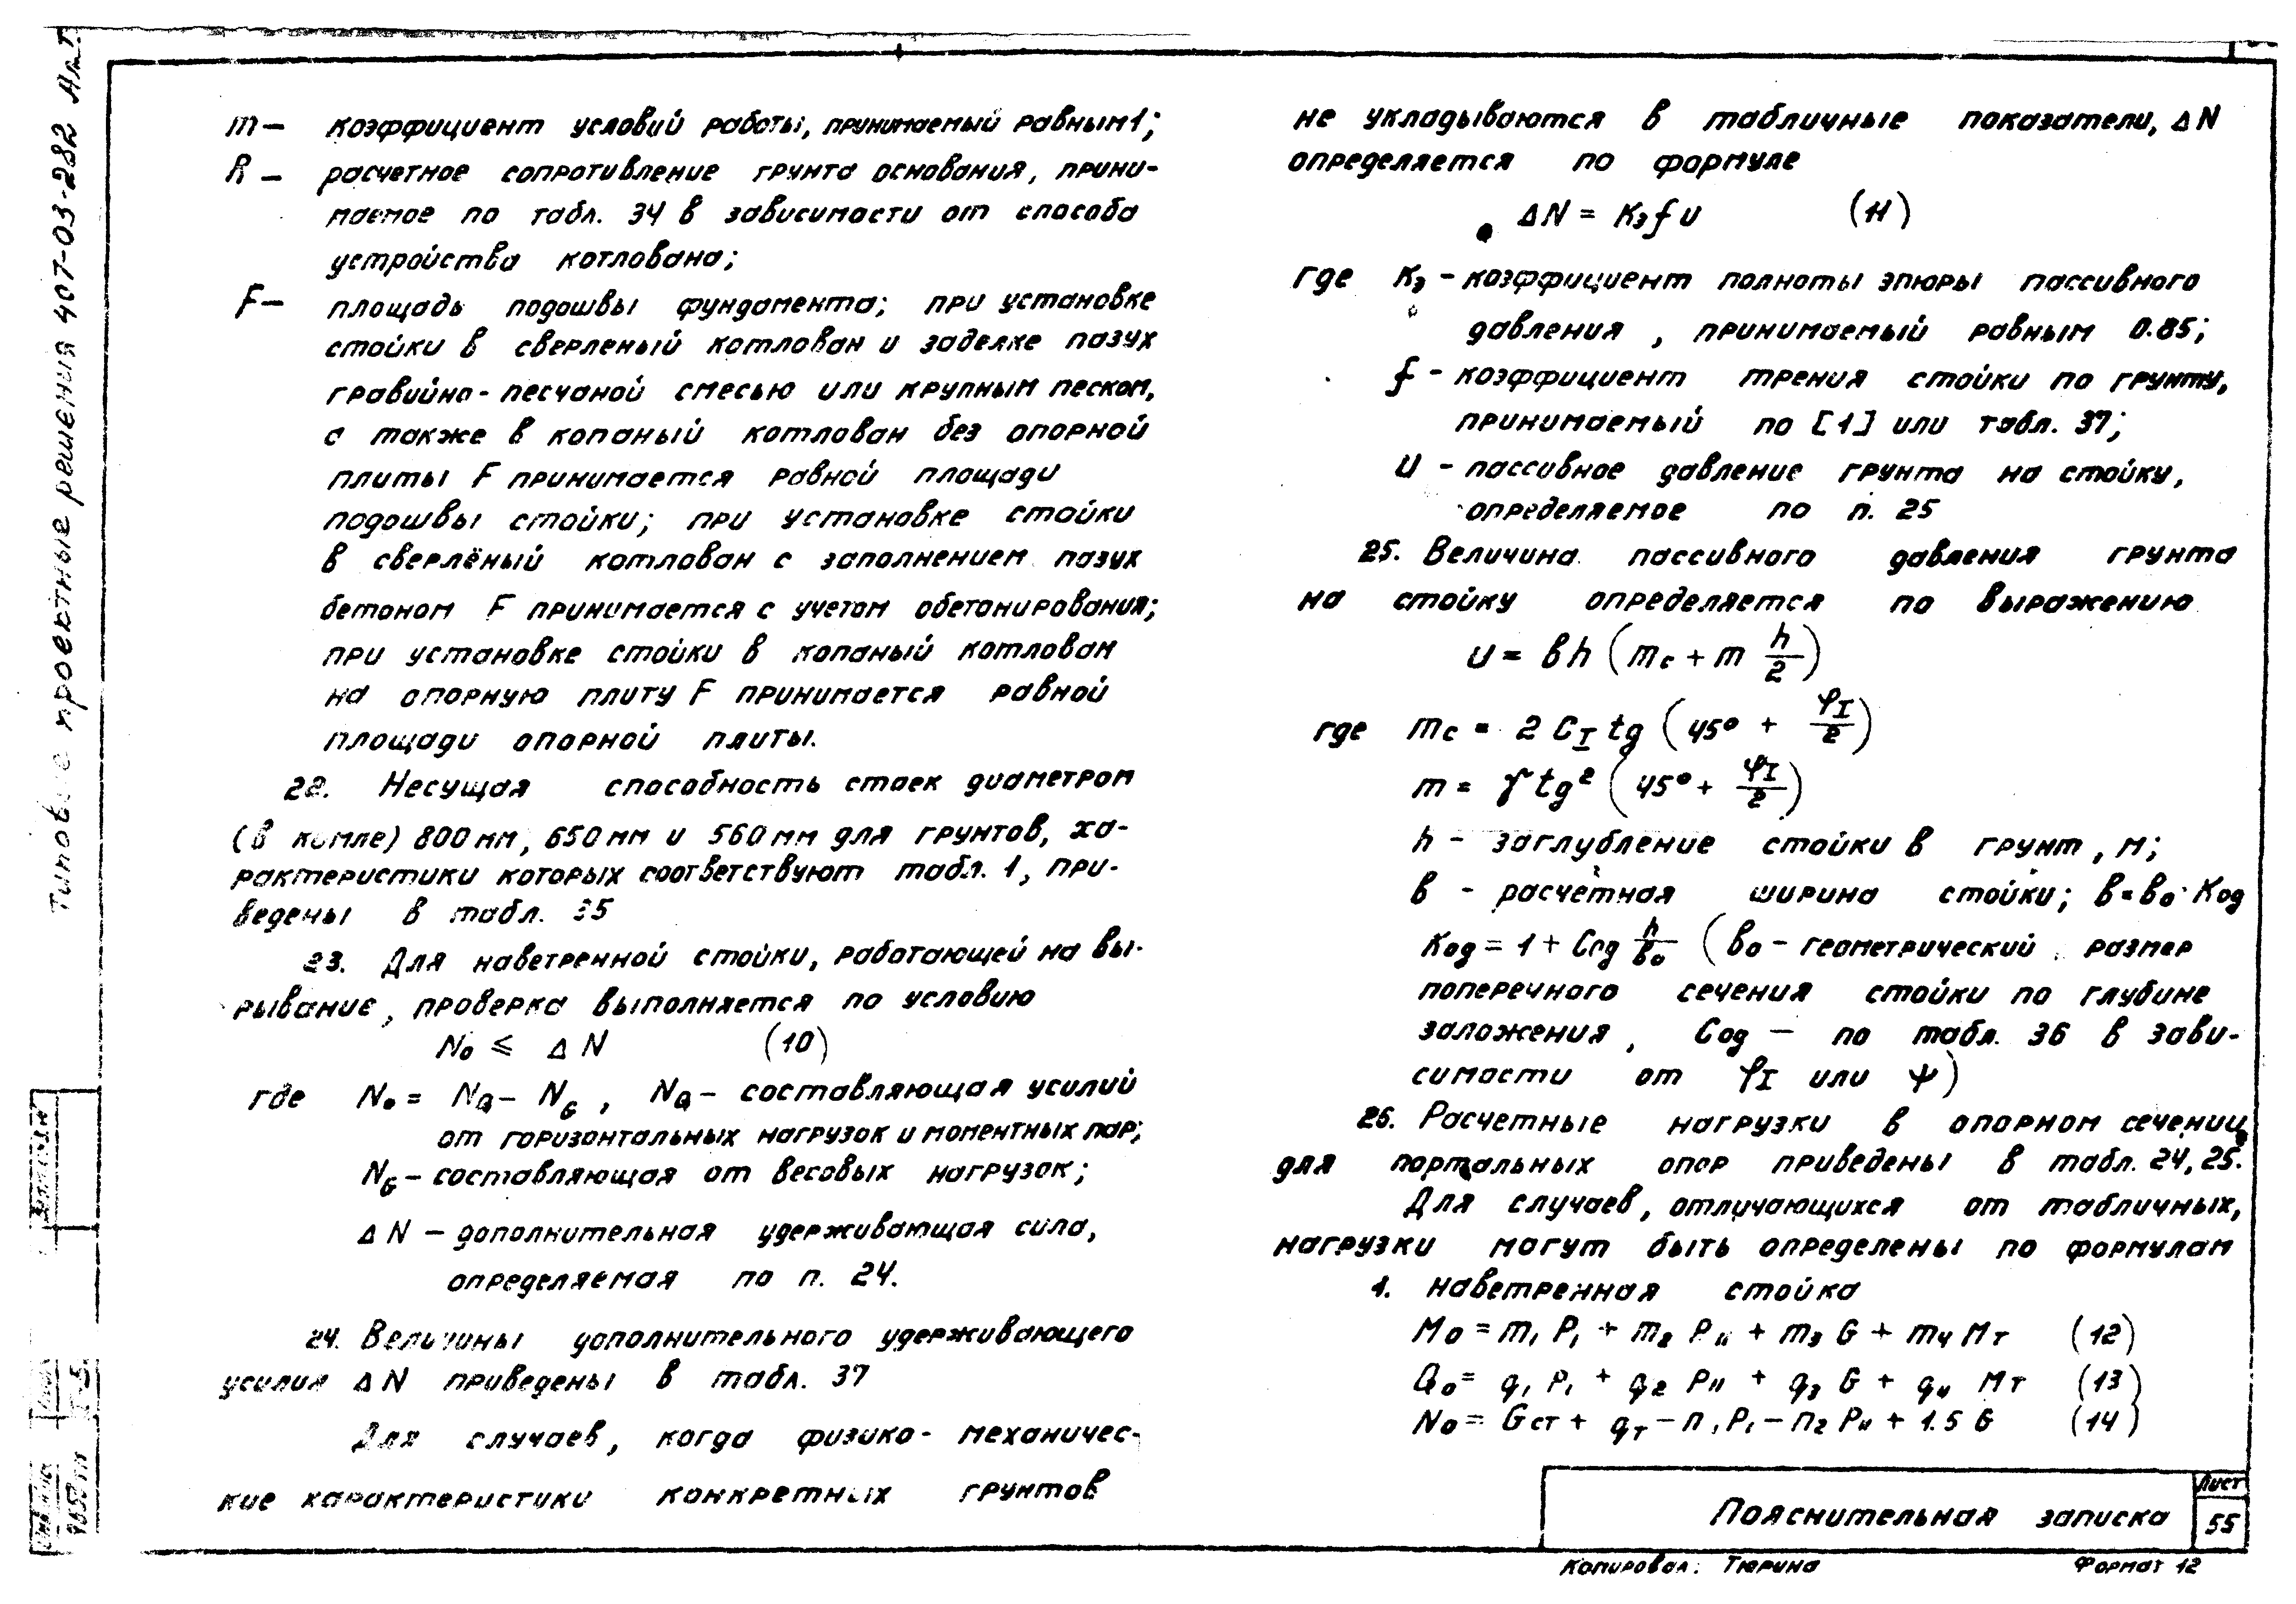 Типовые проектные решения 407-03-282 Ал.I
m — коэффициент условий работы, принимаемый равным 1;
R — расчетное сопротивление грунта основания, прини-
маемое по табл. 34 в зависимости от способа
устройства котлована;
F — площадь подошвы фундамента; при установке
стойки в сверленый котлован и заделке пазух
гравийно-песчаной смесью или крупным песком,
а также в копаный котлован без опорной
плиты F принимается равной площади
подошвы стойки; при установке стойки
в сверлёный котлован с заполнением пазух
бетоном F принимается с учетом обетонирования;
при установке стойки в копаный котлован
на опорную плиту F принимается равной
площади опорной плиты.
22. Несущая способность стоек диаметром
(в комле) 800 мм, 650 мм и 560 мм для грунтов, ха-
рактеристики которых соответствуют табл. 1, при-
ведены в табл. 35
23. Для наветренной стойки, работающей на вы-
рывание, проверка выполняется по условию
N₀ ⩽ ΔN (10)
где N₀ = N_Q − N_G, N_Q — составляющая усилий
от горизонтальных нагрузок и моментных пар;
N_G — составляющая от весовых нагрузок;
ΔN — дополнительная удерживающая сила,
определяемая по п. 24.
24. Величины дополнительного удерживающего
усилия ΔN приведены в табл. 37
Для случаев, когда физико-механичес-
кие характеристики конкретных грунтов
не укладываются в табличные показатели, ΔN
определяется по формуле
ΔN = K₃ f u (11)
где K₃ - коэффициент полноты эпюры пассивного
давления, принимаемый равным 0.85;
f - коэффициент трения стойки по грунту,
принимаемый по [1] или табл. 37;
u - пассивное давление грунта на стойку,
определяемое по п. 25
25. Величина пассивного давления грунта
на стойку определяется по выражению
u = вh (m_c + m h/2)
где m_c = 2 C_I tg (45° + φ_I/2)
m = γ tg² (45° + φ_I/2)
h - заглубление стойки в грунт, м;
в - расчётная ширина стойки; в = в₀ · Kод
Kод = 1 + Cод h/в₀ (в₀ - геометрический размер
поперечного сечения стойки по глубине
заложения, Cод — по табл. 36 в зави-
симости от φ_I или ψ)
26. Расчетные нагрузки в опорном сечении
для портальных опор приведены в табл. 24, 25.
Для случаев, отличающихся от табличных,
нагрузки могут быть определены по формулам
1. наветренная стойка
M₀ = m₁ P₁ + m₂ Pıı + m₃ G + m₄ Mт (12)
Q₀ = q₁ P₁ + q₂ Pıı + q₃ G + q₄ Mт (13)
N₀ = Gст + qт − n₁P₁ − n₂ Pıı + 1.5 G (14)
Пояснительная записка
Лист
55
Копировал: Тюрина Формат 12